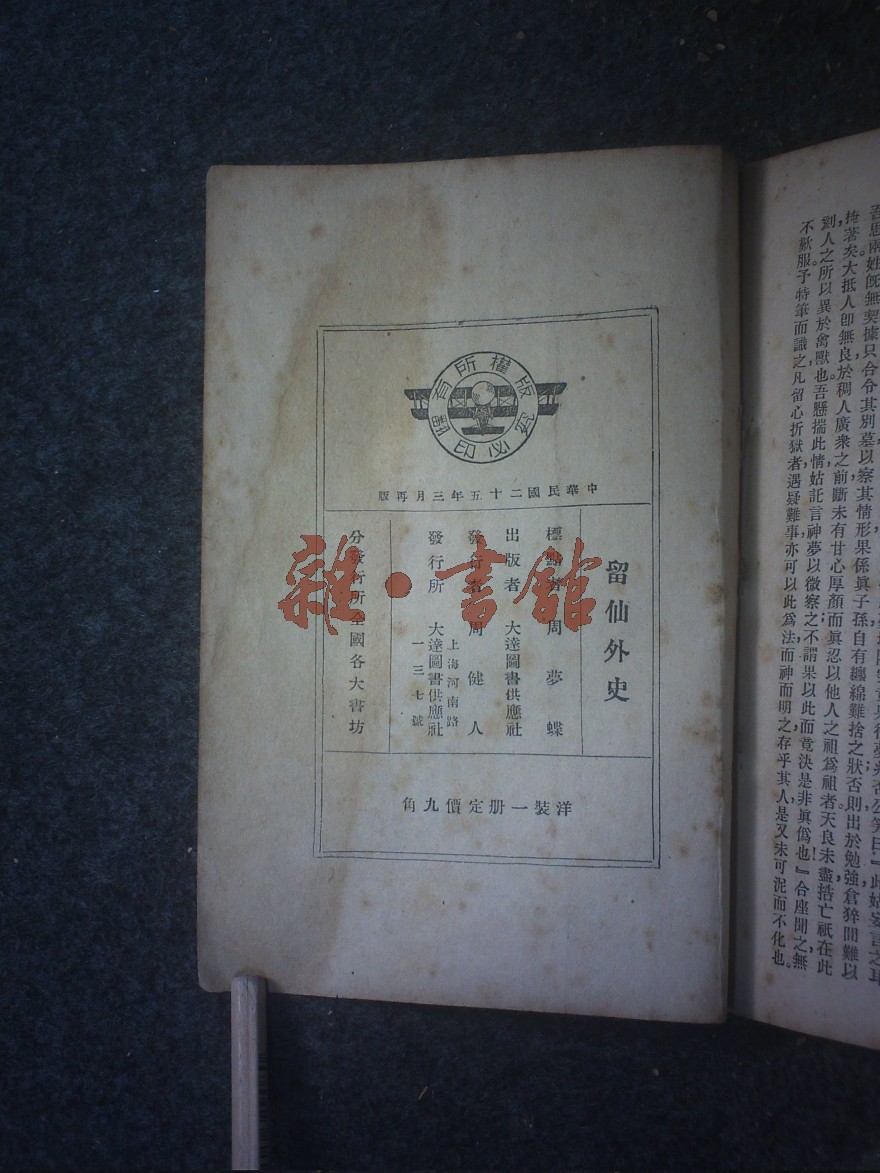 版權所有
翻印必究
中華民國二十五年三月再版
留仙外史
標點者 周夢蝶
出版者 大達圖書供應社
發行者 周健人
發行所 大達圖書供應社
上海河南路
一三七號
分發行所 全國各大書坊
洋裝一册定價九角
雜·書館
吾思兩姓旣無契據只合令其別墓以察其情形果係眞子孫自有纏綿難捨之狀否則出於勉強倉猝間難以
掩著矣大抵人卽無良於稠人廣衆之前斷未有甘心厚顏而眞忍以他人之祖爲祖者天良未盡捁亡祇在此
劃人之所以異於禽獸也吾懸揣此情姑託言神夢以微察之不謂果以此而竟決是非眞僞也』合座聞之無
不歎服予特筆而識之凡留心折獄者遇疑難事亦可以此爲法而神而明之存乎其人是又未可泥而不化也。